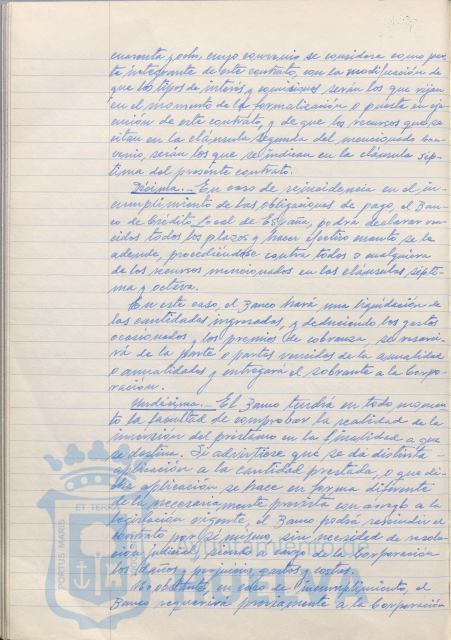 cuarenta y ocho, cuyo convenio se considera como par-
te integrante de este contrato, con la modificación de
que los tipos de interés y comisiones serán los que rijan
en el momento de la formalización o puesta en eje-
cución de este contrato, y de que los recursos que se
citan en la cláusula segunda del mencionado con-
venio, serán los que se indican en la cláusula sép-
tima del presente contrato.
Décima.- En caso de reincidencia en el in-
cumplimiento de las obligaciones de pago, el Ban-
co de Crédito Local de España, podrá declarar ven-
cidos todos los plazos y hacer efectivo cuanto se le
adeude, procediéndose contra todos o cualquiera
de los recursos mencionados en las cláusulas sépti-
ma y octava.
En este caso, el Banco hará una liquidación de
las cantidades ingresadas, y deduciendo los gastos
ocasionados y los premios de cobranza, se resarci-
rá de la parte o partes vencidas de la anualidad
o anualidades y entregará el sobrante a la Corpo-
ración.
Undécima.- El Banco tendrá en todo momen-
to la facultad de comprobar la realidad de la
inversión del préstamo en la finalidad a que
se destina. Si advirtiese que se da distinta
aplicación a la cantidad prestada, o que di-
cha aplicación se hace en forma diferente
de la necesariamente prevista con arreglo a la
legislación vigente, el Banco podrá rescindir el
contrato por sí mismo sin necesidad de resolu-
ción judicial, siendo a cargo de la Corporación
los daños y perjuicios, gastos y costas.
No obstante, en caso de incumplimiento, el
Banco requerirá previamente a la Corporación
PORTUS MARIS
ET TERR
HUELVA